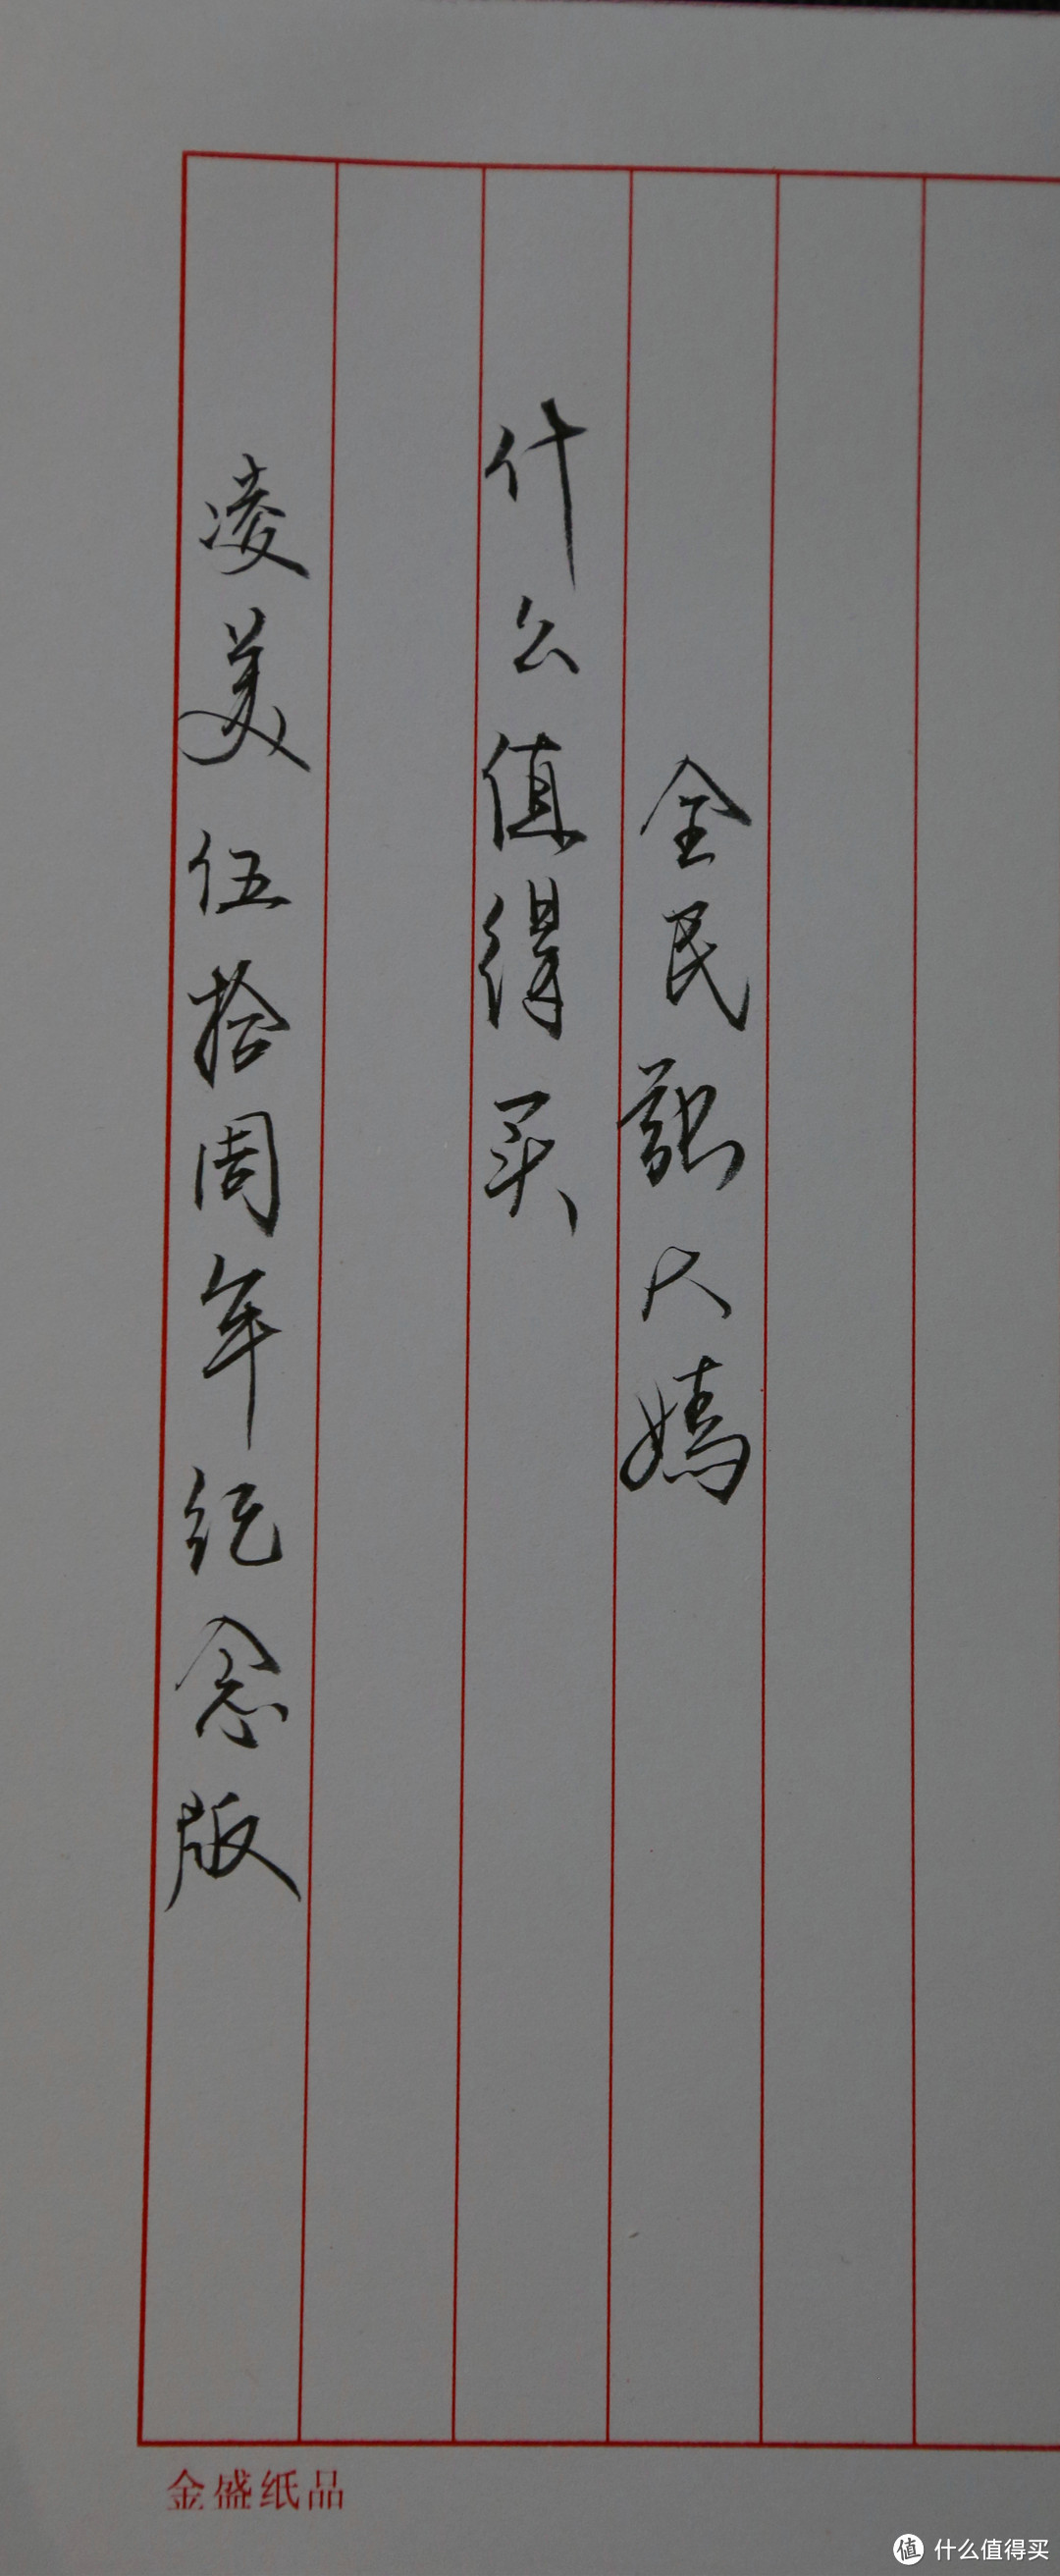 全民大
什么值得买
凌美伍拾周年纪念版
金盛纸品
值 什么值得买